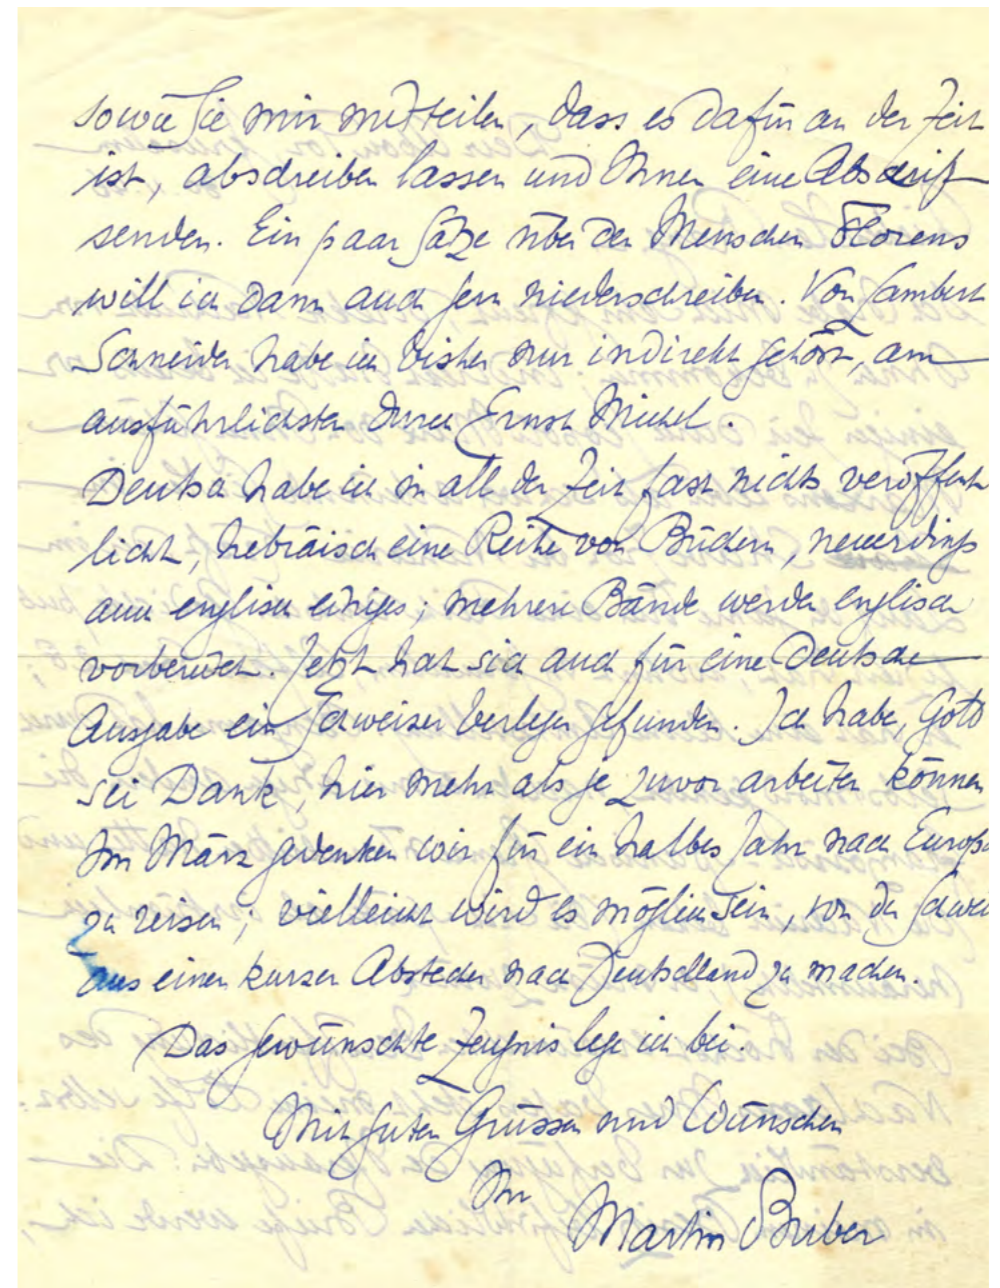 sowie Sie mir mitteilen, dass es dafür an der Zeit
ist, abschreiben lassen und Ihnen eine Abschrift
senden. Ein paar Sätze über den Menschen Florens
will ich dann auch gern niederschreiben. Von Lambert
Schneider habe ich bisher nur indirekt gehört, am
ausführlichsten durch Ernst Michel.
Deutsch habe ich in all der Zeit fast nichts veröffent
licht, hebräisch eine Reihe von Büchern, neuerdings
auch englisch einiges; mehrere Bände werden englisch
vorbereitet. Jetzt hat sich auch für eine deutsche
Ausgabe ein Schweizer Verleger gefunden. Ich habe, Gott
sei Dank, hier mehr als je zuvor arbeiten können
Im März gedenken wir für ein halbes Jahr nach Europa
zu reisen; vielleicht wird es möglich sein, von der Schwei
aus einen kurzen Abstecher nach Deutschland zu machen.
Das gewünschte Zeugnis lege ich bei.
Mit guten Grüssen und Wünschen
Ihr
Martin Buber